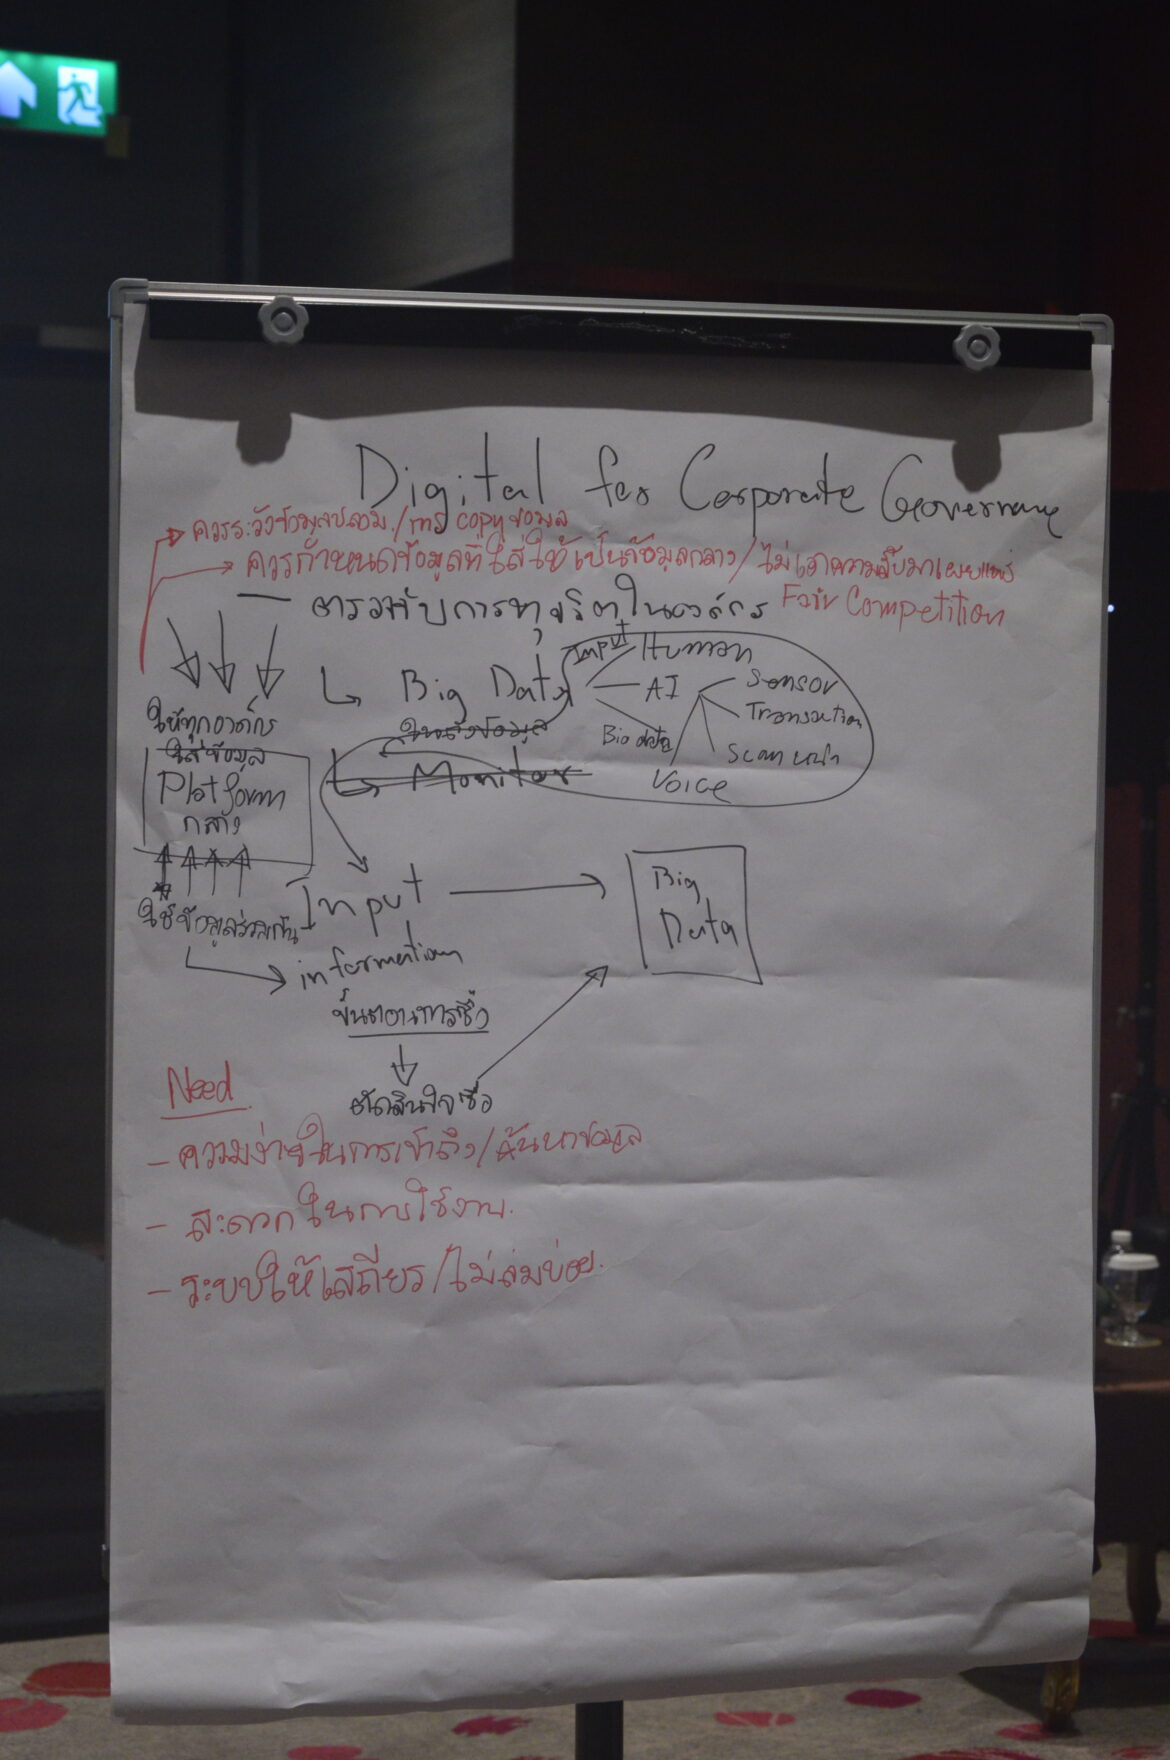 Digital for Corporate Governance
ควรระวังข้อมูลปลอม/การ copy ข้อมูล
ควรกำหนดข้อมูลที่ใส่ให้เป็นข้อมูลกลาง/ไม่เอาความลับมาเผยแพร่
Fair Competition
— ตรวจจับการทุจริตในองค์กร
Big Data
Input
Human
AI
Sensor
Transaction
Scan หน้า
Bio data
Voice
ให้ทุกองค์กร
ใส่ข้อมูล
Platform
กลาง
Monitor
ใช้ข้อมูลร่วมกัน
Input
information
ขั้นตอนการซื้อ
ตัดสินใจซื้อ
Big
Data
Need
- ความง่ายในการเข้าถึง/ค้นหาข้อมูล
- สะดวกในการใช้งาน.
- ระบบให้เสถียร/ไม่ล่มบ่อย.